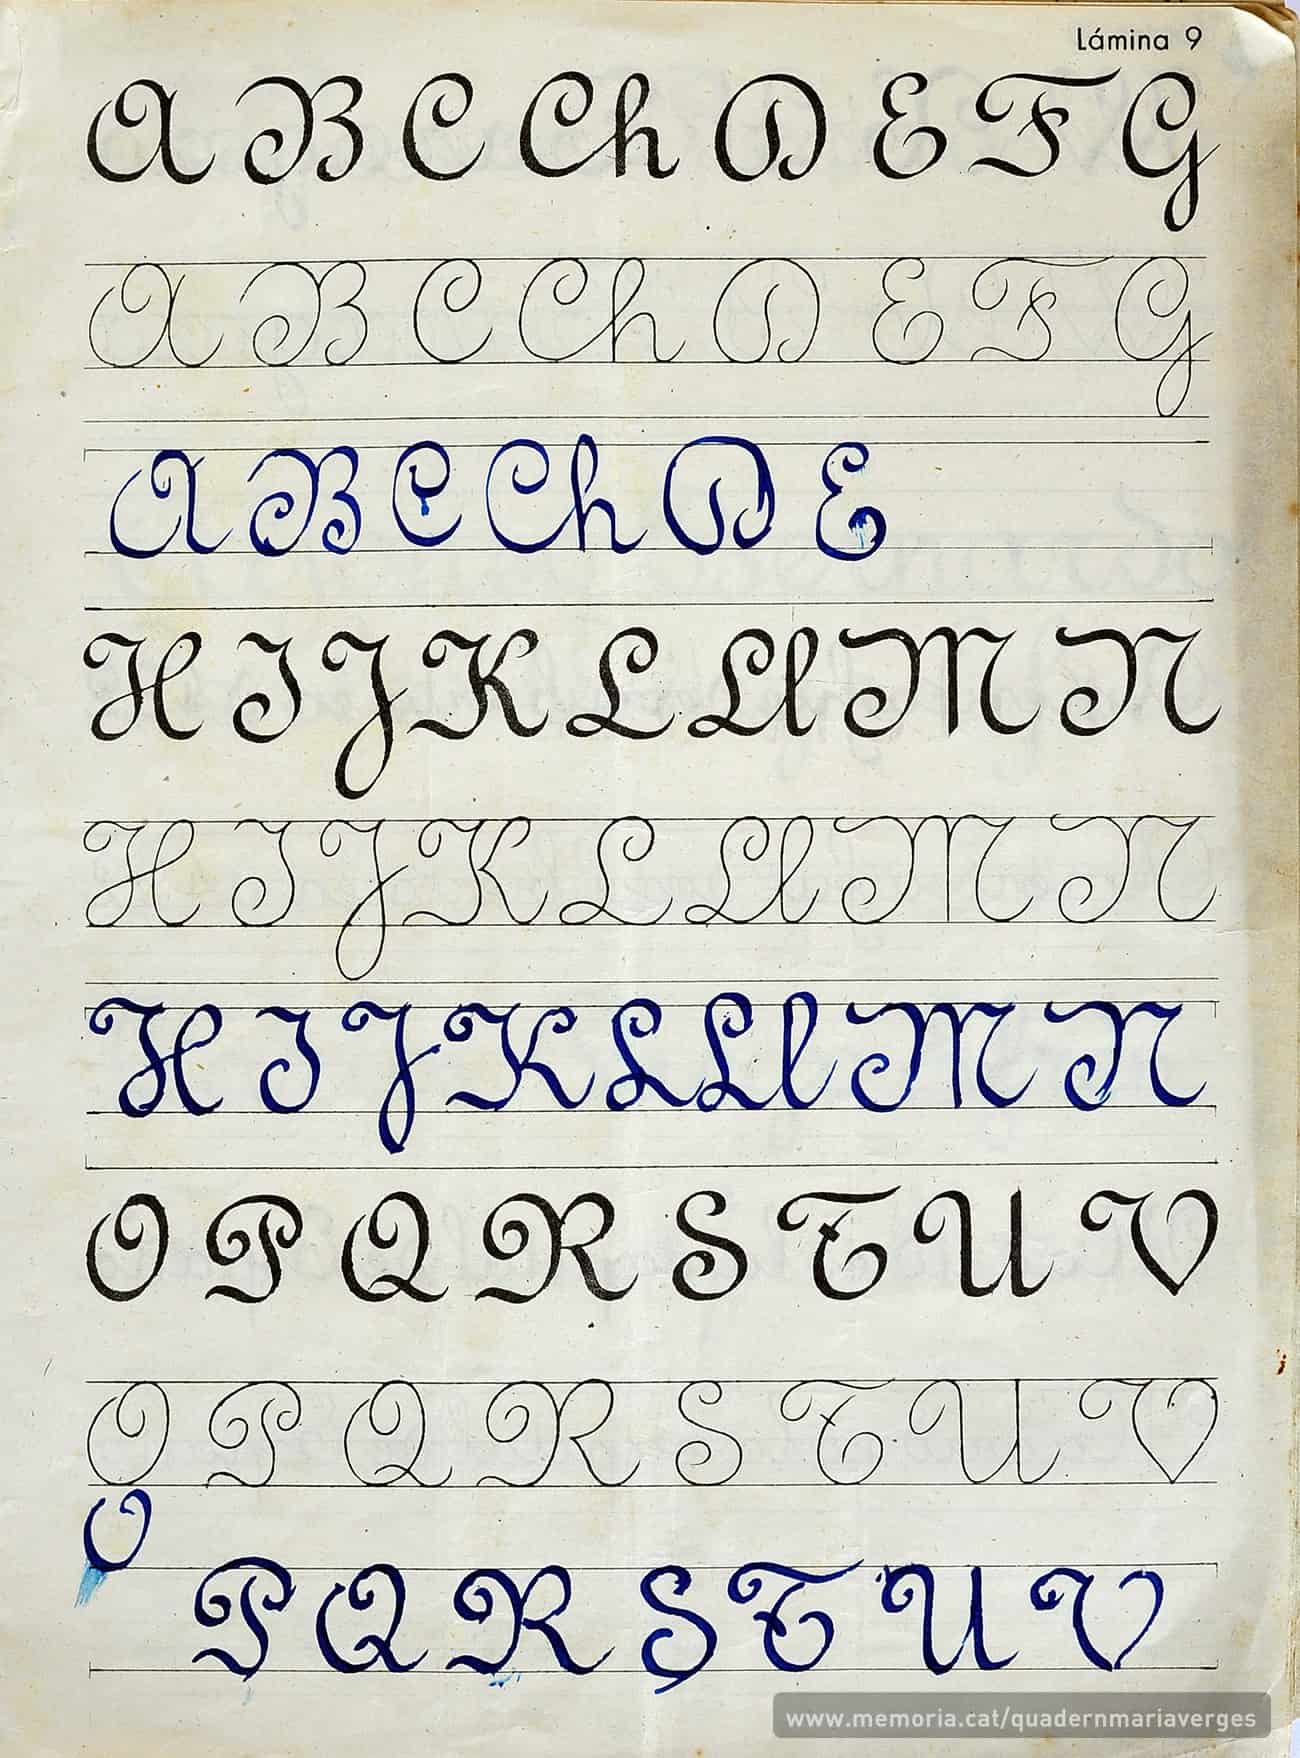 Lámina 9
A B C Ch D E F G
A B C Ch D E F G
A B C Ch D E
H I J K L Ll M N
H I J K L Ll M N
H I J K L Ll M N
O P Q R S T U V
O P Q R S T U V
O P Q R S T U V
www.memoria.cat/quadernmariaverges